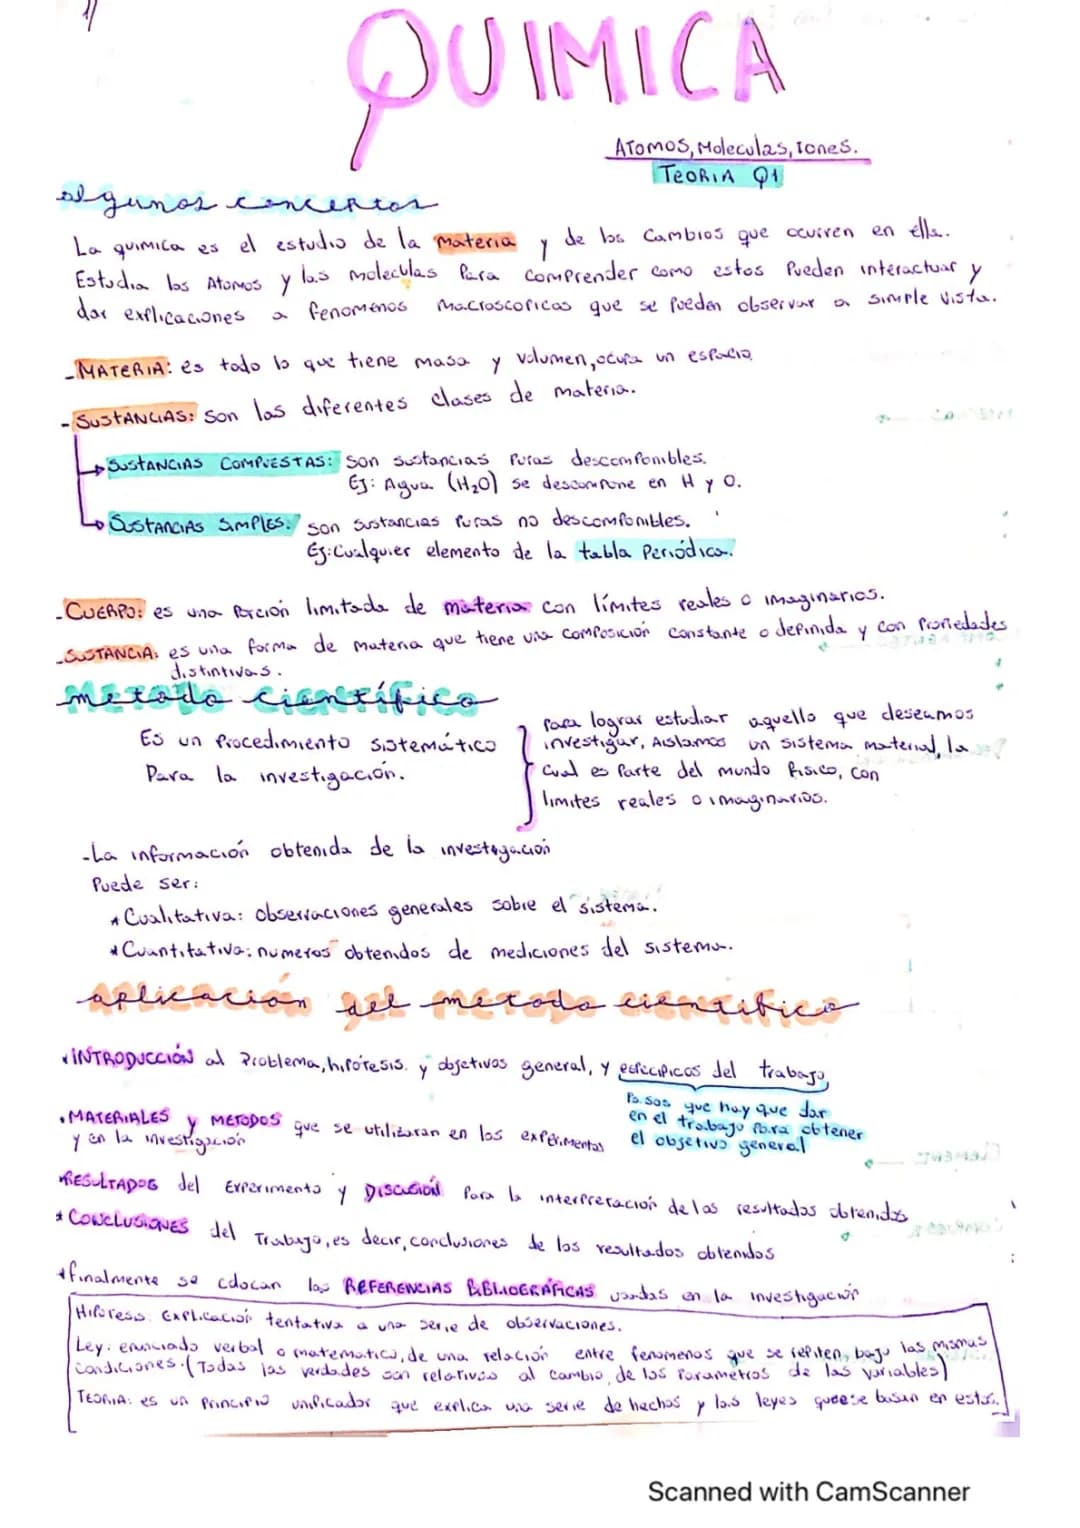 1/
QUIMICA
Atomos, Moleculas, Iones.
TEORIA Q1
algunos conceptos
La quimica es el estudio de la materia y de los cambios que ocurren en ella.
Estudia los Atomos y las moleculas para comprender como estos pueden interactuar y
dar explicaciones a fenomenos macroscopicos que se pueden observar a simple vista.
-MATERIA: es todo lo que tiene masa y volumen, ocupa un espacio
-SUSTANCIAS: son las diferentes clases de materia.
SUSTANCIAS COMPUESTAS: son sustancias puras descomponibles.
Ej: Agua (H₂O) se descompone en H y O.
SUSTANCIAS SIMPLES: son sustancias puras no descomponibles.
Ej: Cualquier elemento de la tabla Periódica.
-CUERPO: es una porción limitada de materia con límites reales o imaginarios.
-SUSTANCIA: es una forma de materia que tiene una composición constante o definida y con propiedades
distintivas.
metodo científico
Es un Procedimiento sistemático
Para la investigación.
Para lograr estudiar aquello que deseamos
investigar, Aislamos un sistema material, la
cual es parte del mundo fisico, con
limites reales o imaginarios.
-La información obtenida de la investigación
Puede ser:
*Cualitativa: observaciones generales sobre el sistema.
*Cuantitativa: numeros obtenidos de mediciones del sistema.
aplicación del metodo cientifico
*INTRODUCCIÓN al Problema, hipótesis y objetivos general, y especificos del trabajo
Pasos que hay que dar
en el trabajo para obtener
el objetivo general
*MATERIALES y METODOS que se utilizaran en los experimentos
y en la investigación
*RESULTADOS del Experimento y DISCUSIÓN para la interpretación de los resultados obtenidos
*CONCLUSIONES del Trabajo, es decir, conclusiones de los resultados obtenidos
*finalmente se colocan las REFERENCIAS BIBLIOGRÁFICAS usadas en la investigación
Hipótesis: Explicación tentativa a una serie de observaciones.
Ley: enunciado verbal o matematico, de una relación entre fenomenos que se repiten, bajo las mismas
condiciones. (Todas las verdades son relativas al cambio de los parametros de las variables)
TEORIA: es un principio unificador que explica una serie de hechos y las leyes que se basan en estos.
Scanned with CamScanner